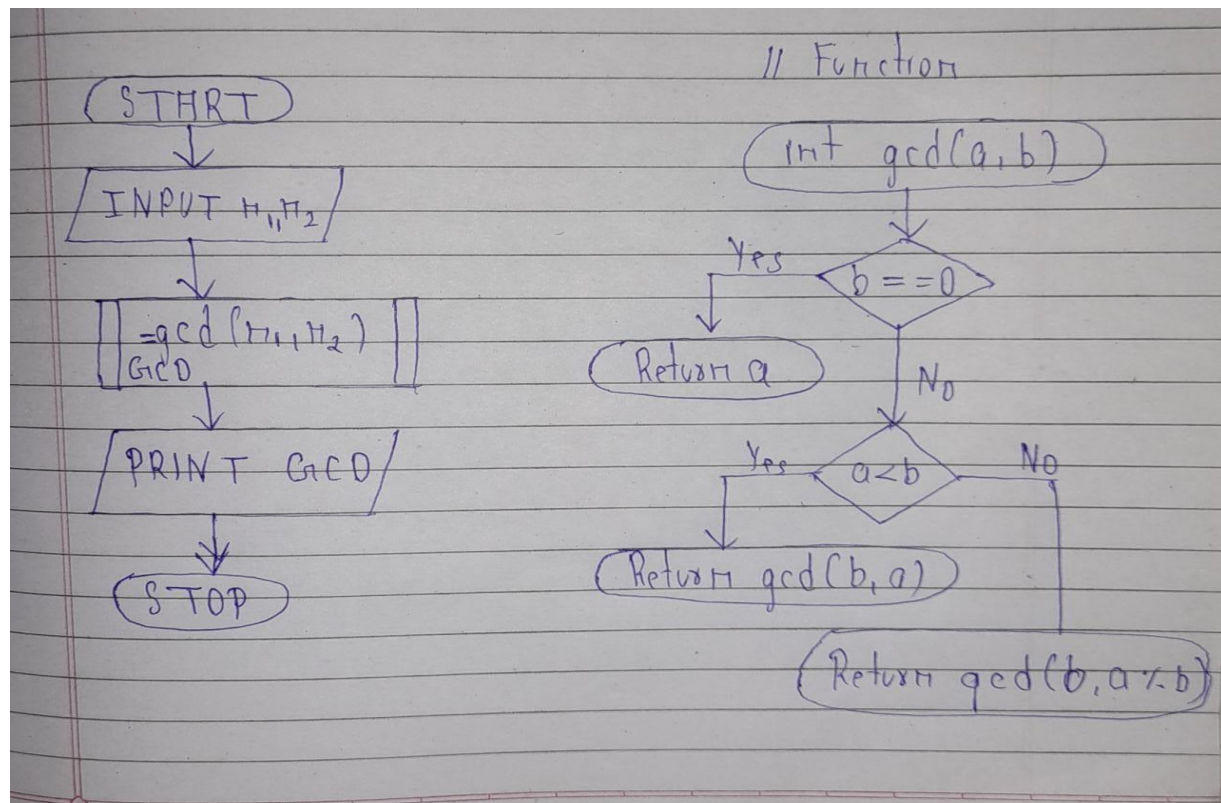 START
INPUT n1, n2
=gcd(n1, n2)
GCD
PRINT GCD
STOP
// Function
int gcd(a, b)
b==0
Yes
Return a
No
a<b
Yes
Return gcd(b, a)
No
Return gcd(b, a%b)